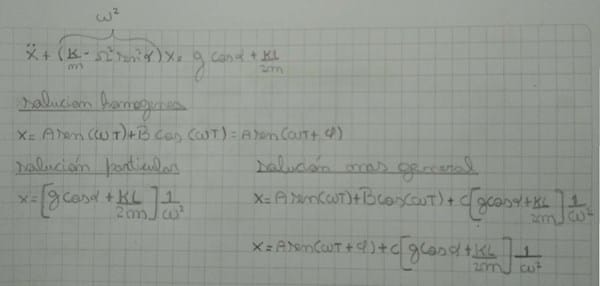 ω²
ẍ + (K/m - Ω² sen² α) x = g cosα + KL/2m
solución homogenea
x = A sen (ωT) + B cos (ωT) = A sen (ωT + φ)
solución particular
x = [g cosα + KL/2m] 1/ω²
solución mas general
x = A sen(ωT) + B cos(ωT) + C[g cosα + KL/2m] 1/ω²
x = A sen (ωT + φ) + C[g cosα + KL/2m] 1/ω²